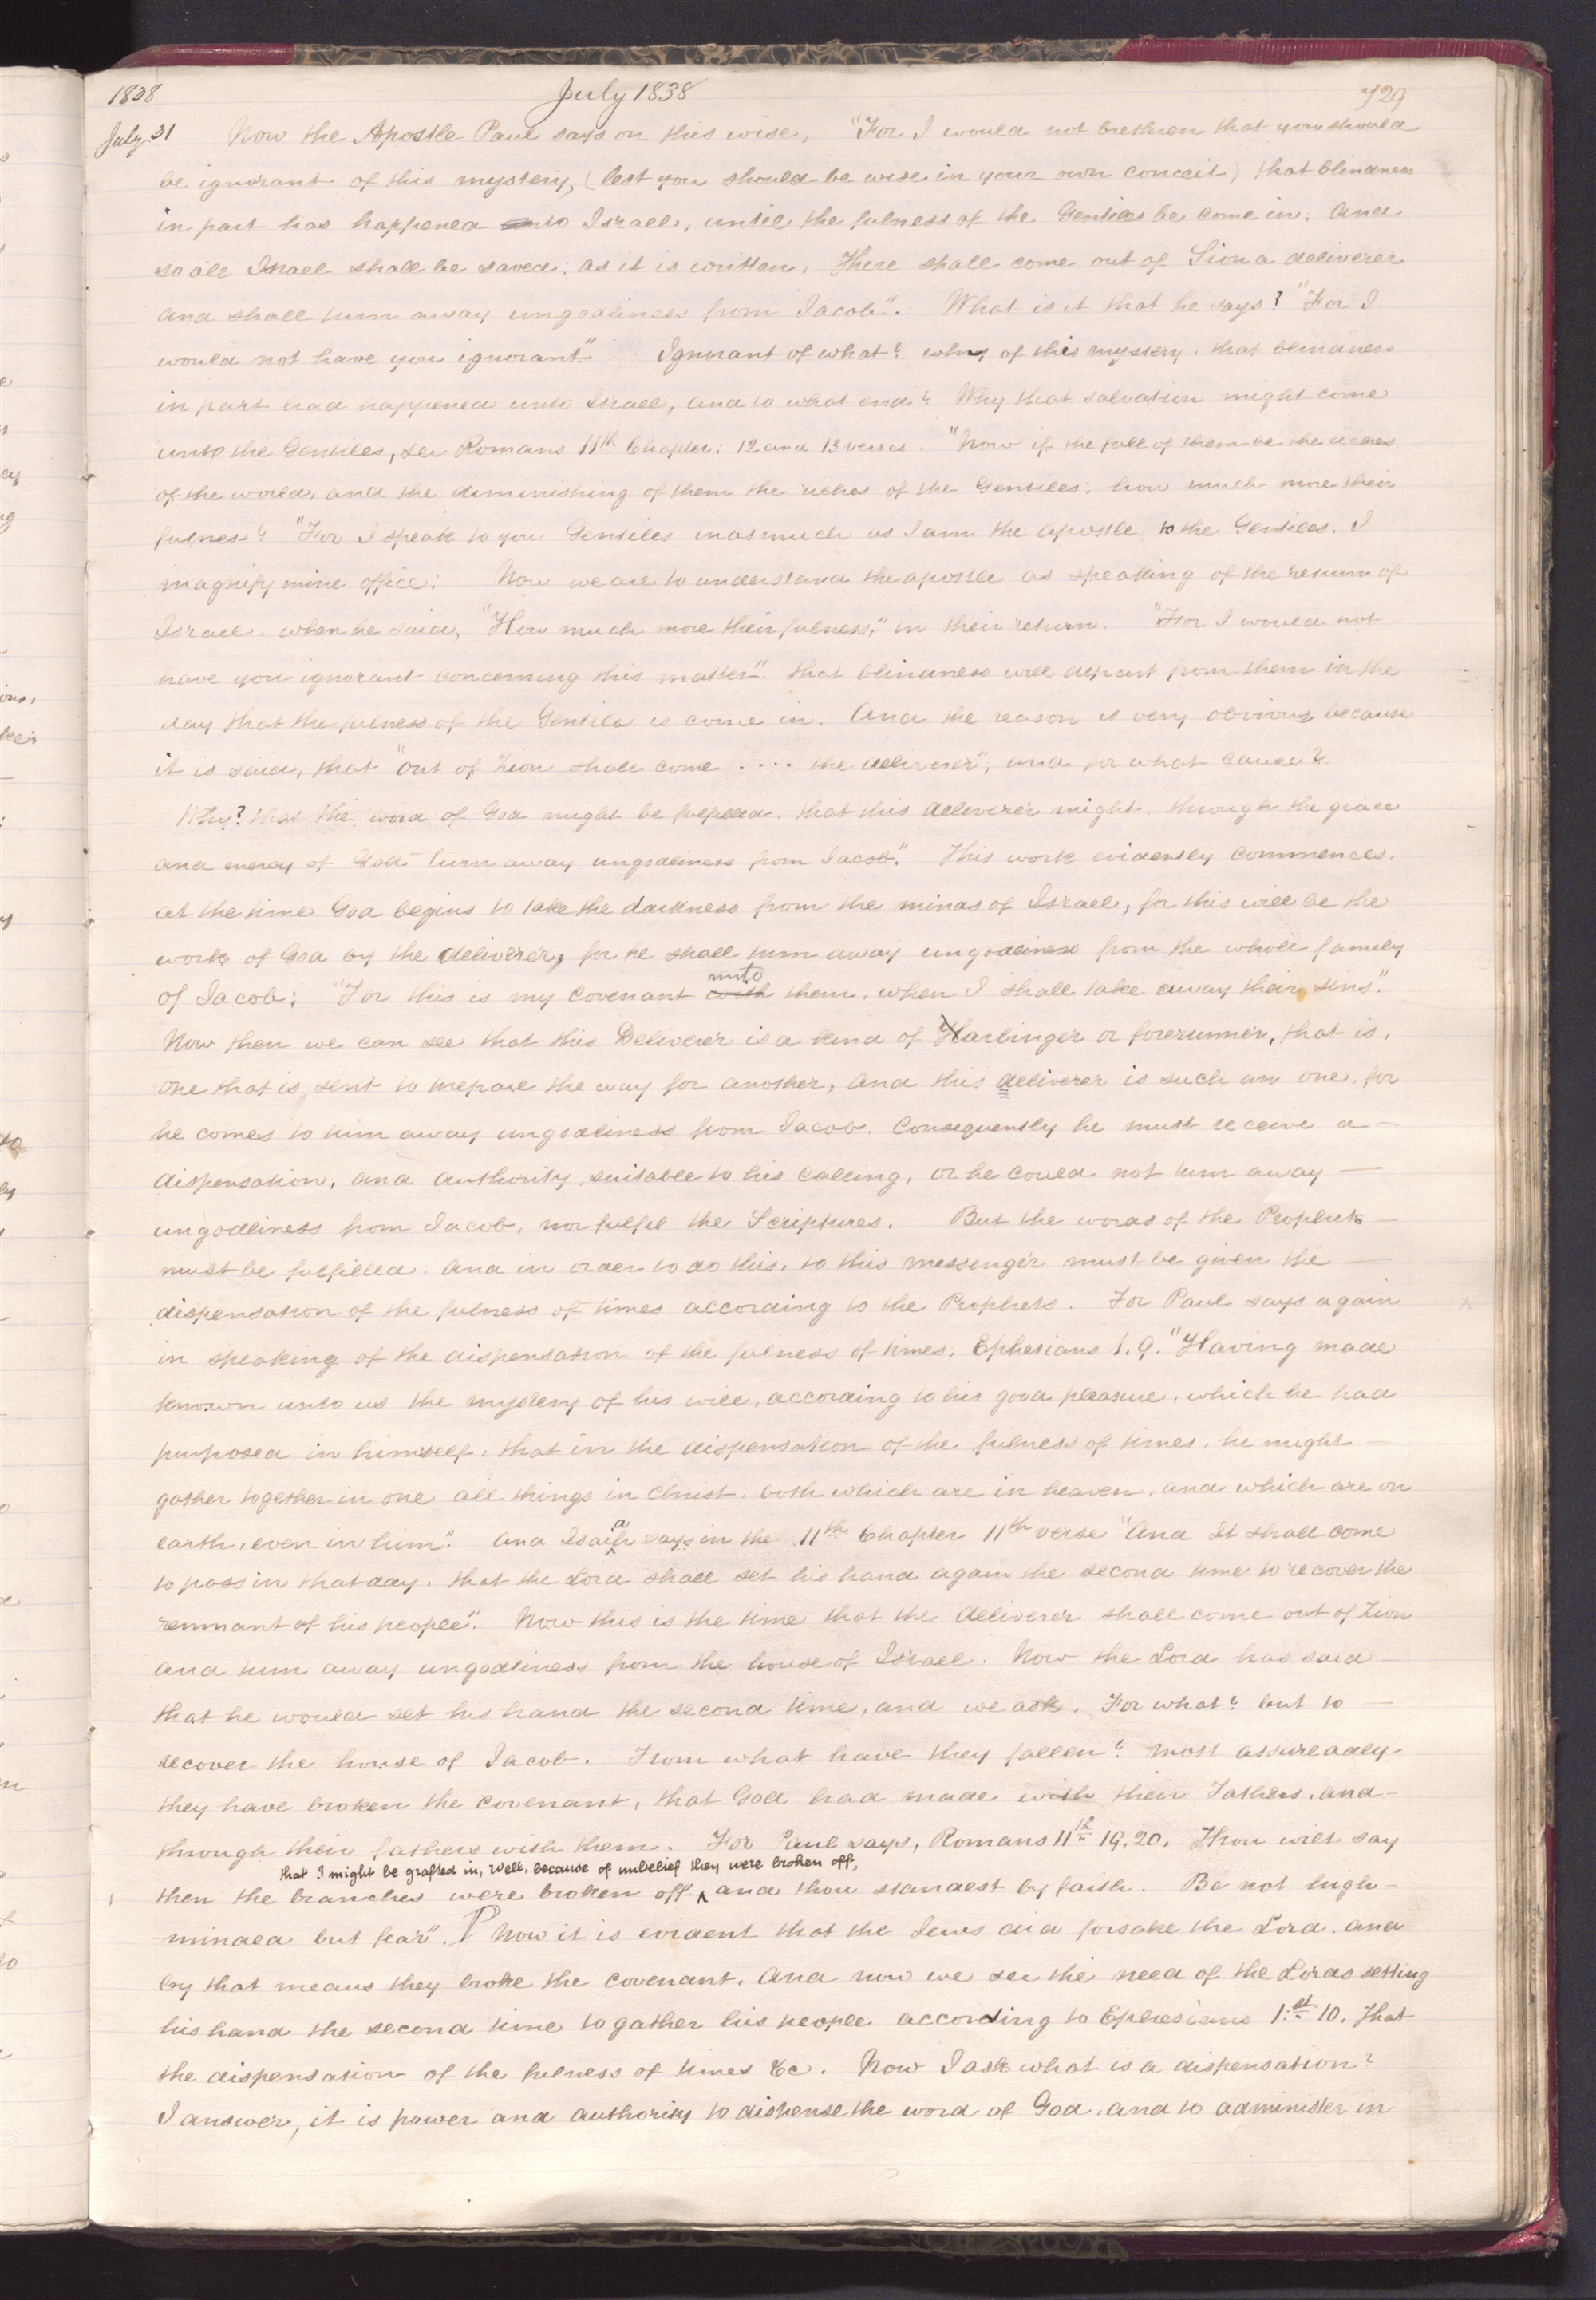 1838 July 1838 729
July 31 Now the Apostle Paul says on this wise, "For I would not brethren that you should
be ignorant of this mystery, (lest you should be wise in your own conceit) that blindness
in part has happened unto Israel, until the fulness of the Gentiles be come in. And
so all Israel shall be saved; as it is written, There shall come out of Sion a deliverer
and shall turn away ungodliness from Jacob". What is it that he says? "For I
would not have you ignorant" Ignorant of what? why of this mystery, that blindness
in part had happened unto Israel, and to what end? Why that salvation might come
unto the Gentiles, see Romans 11th Chapter: 12 and 13 verses. "Now if the fall of them be the riches
of the world, and the diminishing of them the riches of the Gentiles; how much more their
fulness? "For I speak to you Gentiles inasmuch as I am the apostle to the Gentiles. I
magnify mine office: Now we are to understand the apostle as speaking of the return of
Israel when he said, "How much more their fulness," in their return. "For I would not
have you ignorant concerning this matter". that blindness will depart from them in the
day that the fulness of the Gentiles is come in. And the reason is very obvious because
it is said, that "out of Zion shall come .... the deliverer", and for what cause?
Why? that the word of God might be fulfilled. that this deliverer might, through the grace
and mercy of God "turn away ungodliness from Jacob." This work evidently commences.
at the time God begins to take the darkness from the minds of Israel, for this will be the
work of God by the deliverer, for he shall turn away ungodliness from the whole family
unto
of Jacob; "For this is my covenant with them, when I shall take away their sins."
Now then we can see that this Deliverer is a kind of Harbinger or forerunner, that is,
one that is sent to prepare the way for another, and this deliverer is such an one, for
he comes to turn away ungodliness from Jacob. Consequently he must receive a—
dispensation, and authority suitable to his calling, or he could not turn away—
ungodliness from Jacob, nor fulfil the Scriptures. But the words of the Prophets—
must be fulfilled. And in order to do this, to this messenger must be given the—
dispensation of the fulness of times according to the Prophets. For Paul says again
in speaking of the dispensation of the fulness of times, Ephesians 1.9. "Having made
known unto us the mystery of his will, according to his good pleasure, which he had
purposed in himself, that in the dispensation of the fulness of times, he might—
gather together in one all things in Christ, both which are in heaven, and which are on
a
earth, even in him". And Isaih says in the 11th Chapter 11th verse "And It shall come
to pass in that day, that the Lord shall set his hand again the second time to recover the
remnant of his people". Now this is the time that the deliverer shall come out of Zion
and turn away ungodliness from the house of Israel. Now the Lord has said—
that he would set his hand the second time, and we ask, For what? but to—
recover the house of Jacob. From what have they fallen? most assureadly-
they have broken the covenant, that God had made with their Fathers, and-
through their fathers with them. For Paul says, Romans 11th 19,20. Thou wilt say
that I might be grafted in, Well, because of unbelief they were broken off,
then the branches were broken off ‸ and thou standest by faith. Be not high-
-minded but fear". P Now it is evident that the Jews did forsake the Lord, and
by that means they broke the covenant, And now we see the need of the Lords setting
his hand the second time to gather his people according to Ephesians 1:st 10. That
the dispensation of the fulness of times &c. Now I ask what is a dispensation?
I answer, it is power and authority to dispense the word of God, and to administer in